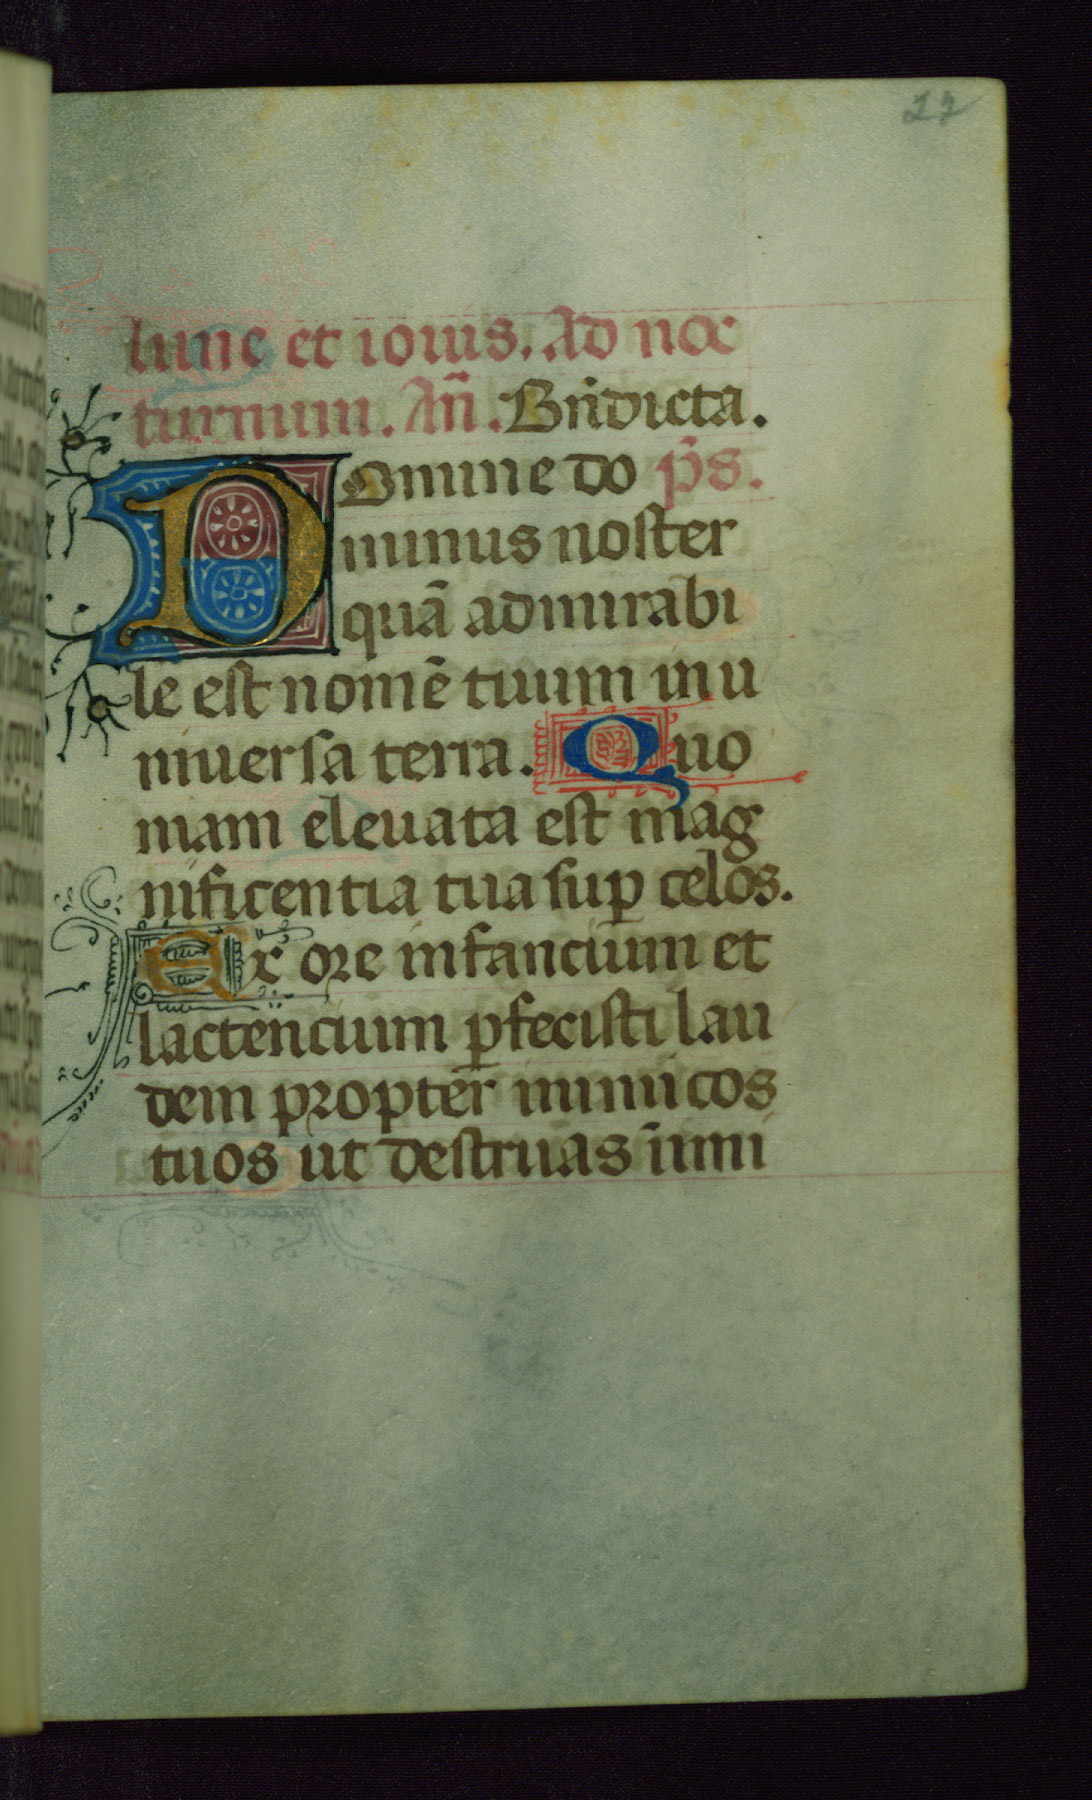 22
lune et iouis. Ad noc
turnum. Añ. Bñdicta.
Domine do p̄s.
minus noster
quā admirabi
le est nomē tuum in u
niuersa terra. Quo
niam eleuata est mag
nificentia tua sup celos.
Ex ore infancium et
lactencium pfecisti lau
dem propter inimicos
tuos ut destruas inimi